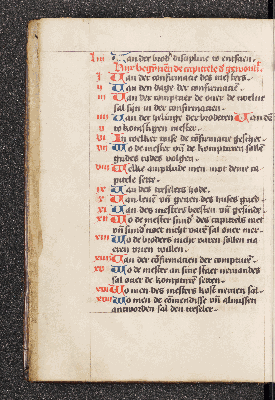 liii Van der brod' discipline to entfaen
Hyr begynnen de capittele d' gewonh'
i Van der confirmacie des mesters.
ii Van den dage der confirmacie
iii Van der compture de over de roelue
sal sijn in der confirmacien.
iiii Van der helinge der broderen Van de
v to komstigen mester.
vi In welker wise de confirmare geschyt.
vii Wo de mester vn de kompturen sullen
gudes rades volgen.
viii Welke amptlude men mot deme ca
pitele sette.
ix Van des treselers hode.
x Van leue vn geuen des huses gued
xi Van des mesters beesten vn gesinde
xii Wo de mester sund' des capitels rait
vn sund' noet nicht varen sal ouer mer
xiii Wo de broders nicht varen sullen na
eren eyen willen.
xiiii Van der confirmacien der compture.
xv Wo de mester an sine staet nemandes
sal ouer de kompture setten.
xvi Wo men des mesters kost nemen sal
xvii Wo men de comendisse vn almissen
antworden sal den treseler.